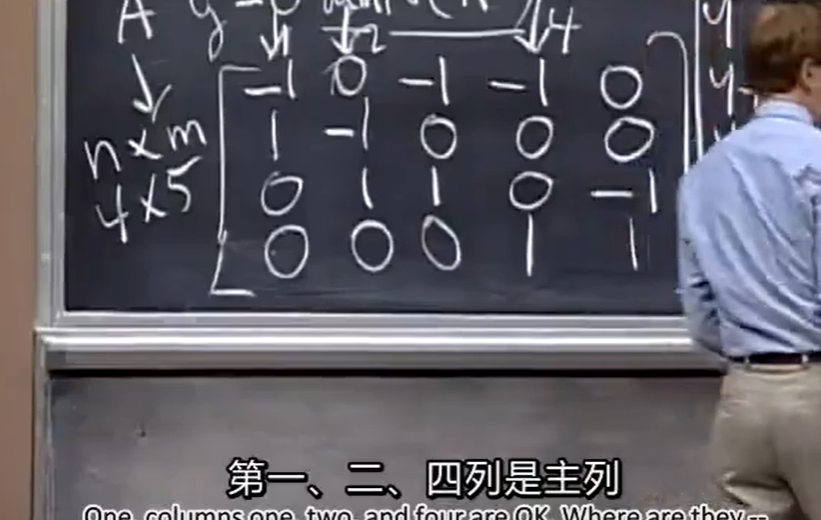 A y
1 2 4
-1 0 -1 -1 0
n x m 1 -1 0 0 0
4 x 5 0 1 1 0 -1
0 0 0 1 1
第一、二、四列是主列
One, columns one, two, and four are OK. Where are they --